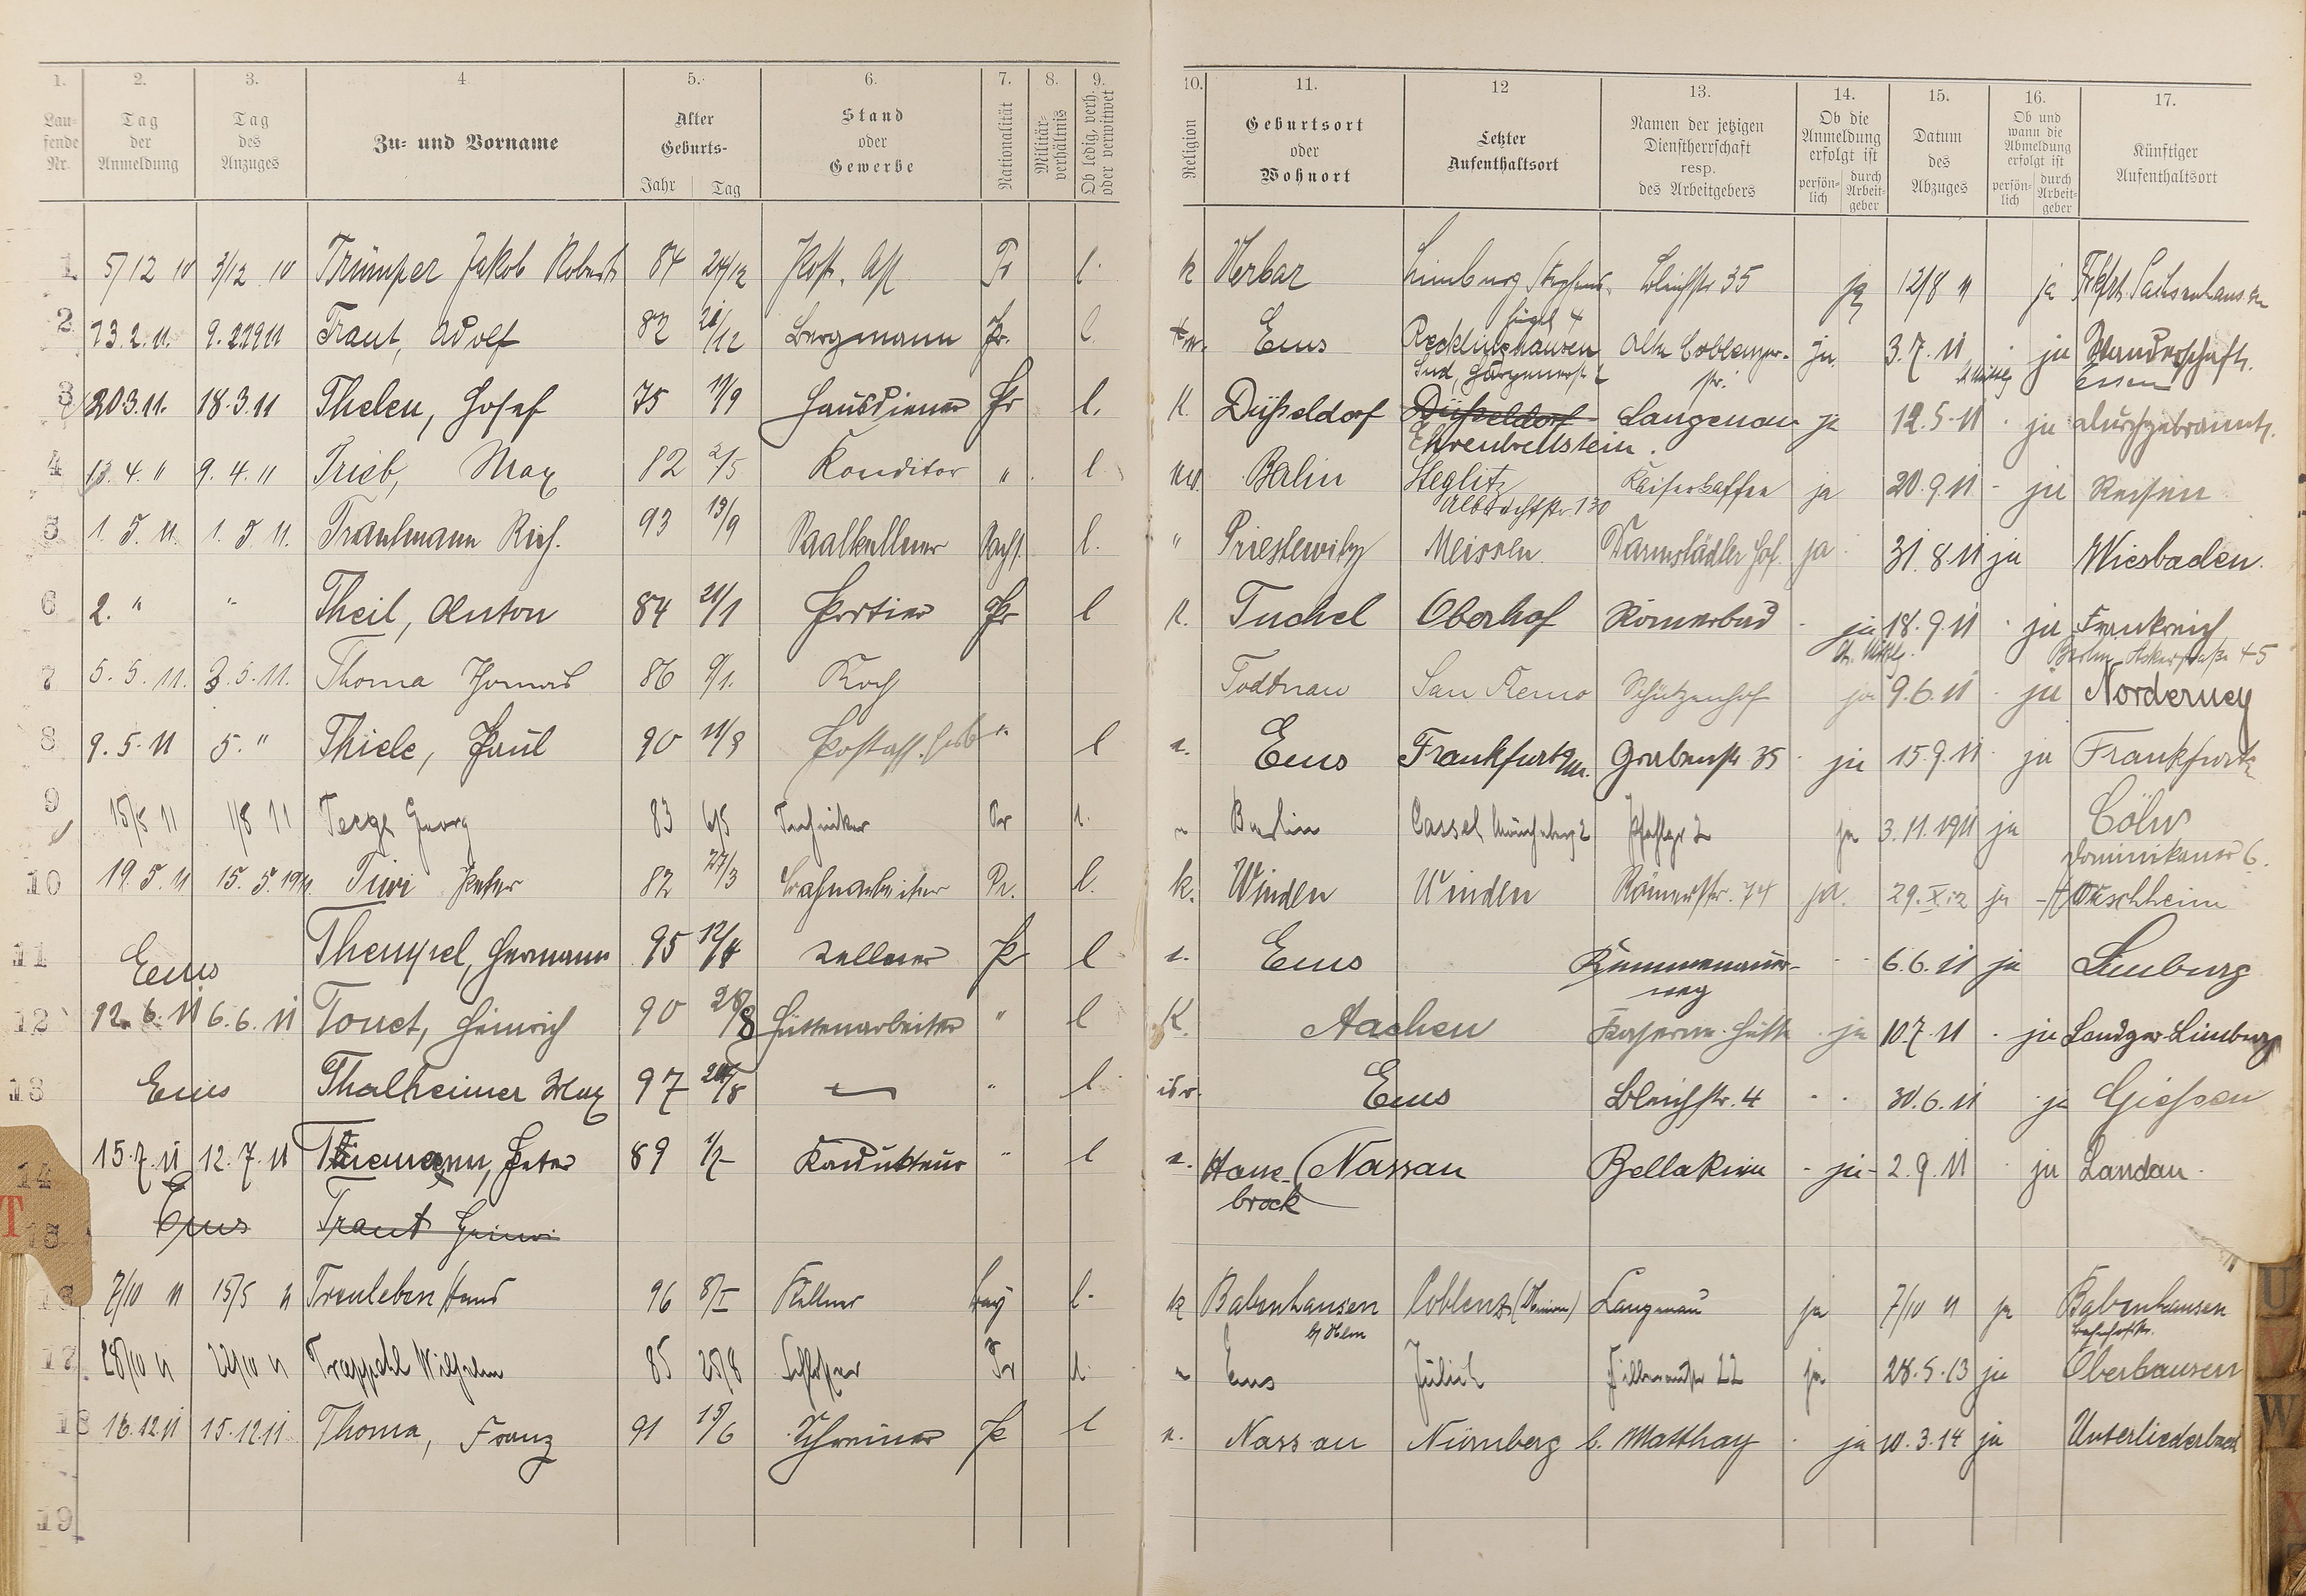 1. 2. 3. 4. 5. 6. 7. 8. 9. 10. 11. 12 13. 14. 15. 16. 17.
Laufende Nr. Tag der Anmeldung Tag des Anzuges Zu- und Vorname Alter Geburts- Jahr Tag Stand oder Gewerbe Nationalität Militärverhältnis Ob ledig, verh. oder verwitwet Religion Geburtsort oder Wohnort Letzter Aufenthaltsort Namen der jetzigen Dienstherrschaft resp. des Arbeitgebers Ob die Anmeldung erfolgt ist persönlich durch Arbeitgeber Datum des Abzuges Ob und wann die Abmeldung erfolgt ist persönlich durch Arbeitgeber Künftiger Aufenthaltsort
1 5/12 10 3/12 10 Trümper Jakob Robert 84 24/12 Post. Ass Pr l. k Herbar Limburg Bleichstr 35 ja 12/8 11 ja Frkft. Sachsenhausen
2 13.2.11. 9.2.1911 Traut, Adolf 82 Bergmann Pr. l. Ems Recklinghausen Süd, Alte Coblenzer-str. ja 3.7.11 ja Wanderschaft.
Essen
3 20.3.11. 18.3.11 Thelen, Josef 75 19/9 Hausdiener Pr l. K. Düsseldorf Düsseldorf Ehrenbreitstein. Langenau ja 12.5.11 ja durchgebrannt.
4 13.4. " 9.4. " Trieb, Max 82 2/5 Konditor " l ev. Berlin Steglitz Albrechtstr. 130 Kaiserkaffee ja 20.9.11 - ja Reisen
5 1.5.11. 1.5.11. Trautmann Rich. 93 13/9 Saalkellner Sachs. l. " Priestewitz Meissen. Darmstädter Hof. ja 31.8.11 ja Wiesbaden.
6 2. " " Theil, Anton 84 21/1 Portier Pr l K. Tuchel Oberhof Römerbad ja 18.9.11 ja Frankreich
Berlin Ackerstraße 45
7 5.5.11. 3.5.11. Thoma Thomas 86 9/1. Koch Todtnau San Remo Schützenhof ja 9.6.11 ja Norderney
8 9.5.11 5. " Thiele, Paul 90 11/9 Postass. " l Ems Frankfurt a/m. Grabenstr. 35 ja 15.9.11 ja Frankfurt
9 15/5 11 Georg 83 6/5 Techniker Pr l. " Berlin Cassel ja 3.11.1911 ja Cöln
Dominikaner 6.
10 19.5.11 15.5.1911. Peter 82 27/3 Bahnarbeiter Pr. l. k. Winden Winden Römerstr. 74 ja. 29.X.12 ja
11 Ems Thempel, Hermann 95 12/4 Kellner Pr l Ems Kemmenauer-weg 6.6.11 ja Limburg
12 12.6.11 6.6.11 Tonet, Heinrich 90 28/8 Hüttenarbeiter " l K. Aachen Kaserne Hütte ja 10.7.11 ja Landger. Limburg
13 Ems Thalheimer Max 97 " l isr. Ems Bleichstr. 4 30.6.11 ja Giessen
14 15.7.11 12.7.11 Thiemann, Peter 89 Kondukteur " l Hamebrock (Nassau Bellariva - ja - 2.9.11 ja Landau.
T
15 Ems Traut
16 7/10 11 15/5 11 Treuleben Hans 96 8/I Kellner bay l. k Babenhausen Coblenz Langenau ja 7/10 11 ja Babenhausen
Bahnhofstr.
17. 28/10 11 22/10 11 Trappehl Wilhelm 85 25/8 Schlosser Pr l. " Ems Jülich 22 ja 28.5.13 ja Oberhausen
18 16.12.11 15.12.11 Thoma, Franz 91 15/6 Schreiner Pr l Nassau Nürnberg b. Matthay ja 10.3.14 ja Unterliederbach
19
U
V
W
X